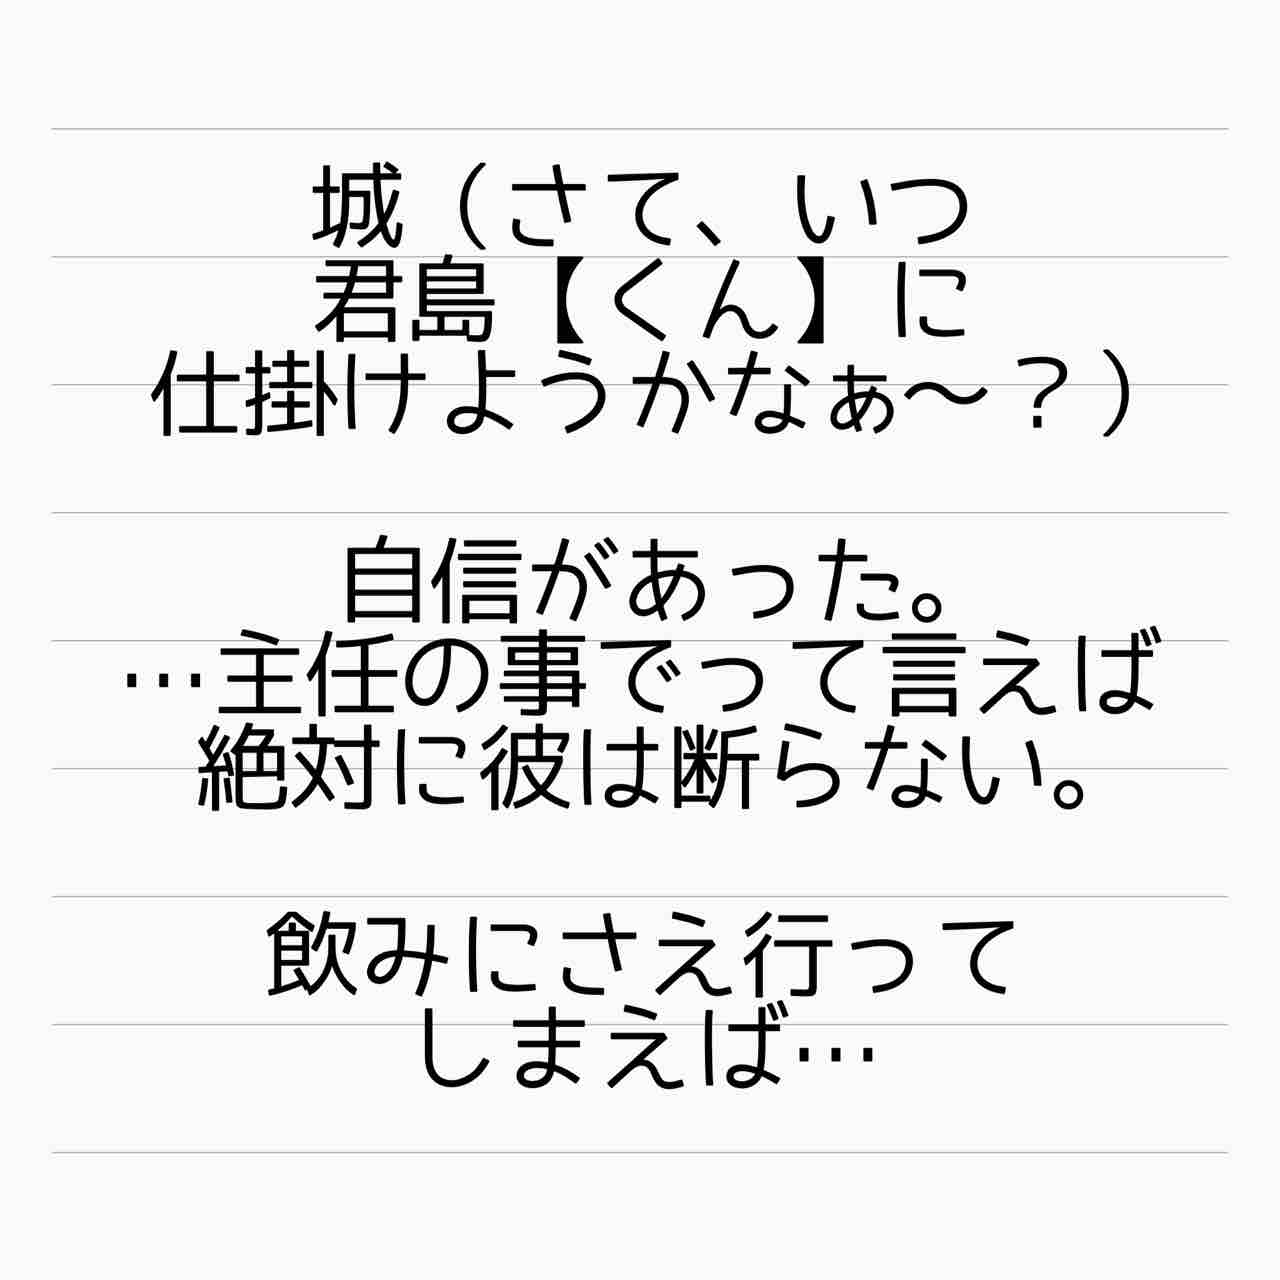 城（さて、いつ
君島【くん】に
仕掛けようかなぁ〜？）
自信があった。
…主任の事でって言えば
絶対に彼は断らない。
飲みにさえ行って
しまえば…